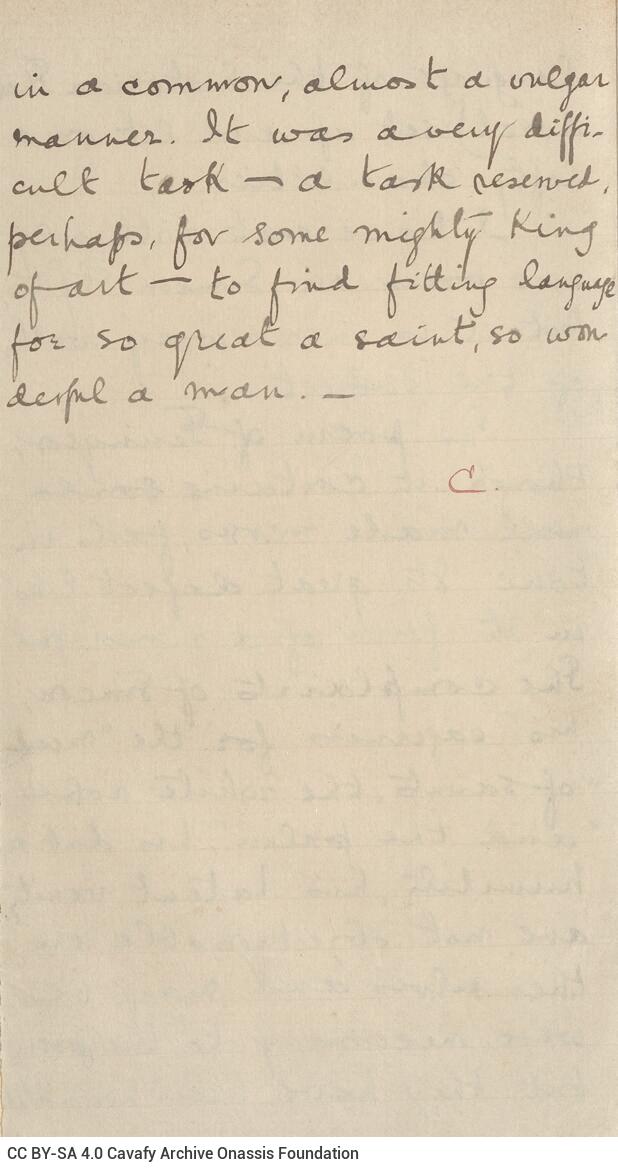 in a common, almost a vulgar
manner. It was a very diffi-
cult task — a task reserved,
perhaps, for some mighty King
of art — to find fitting language
for so great a saint, so won
derful a man. —
C.
CC BY-SA 4.0 Cavafy Archive Onassis Foundation